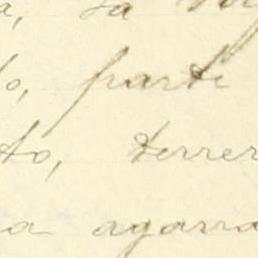 a, sa
o, parte
to, terrer
a agarra